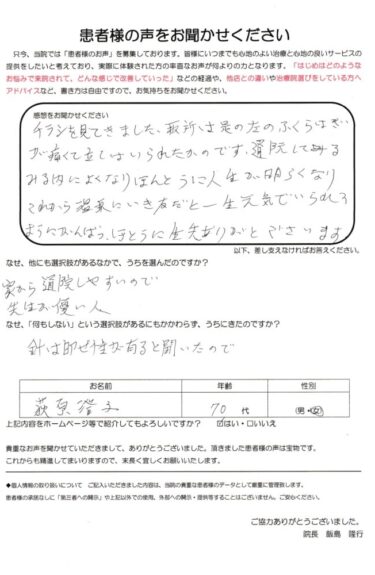 患者様の声をお聞かせください
只今、当院では「患者様のお声」を募集しております。皆様にいつまでも心地のよい治療と心地の良いサービスの
提供をしたいと考えており、実際に体験された方の率直なお声が何よりの力となります。「はじめはどのような
お悩みで来院されて、どんな感じで改善していった」などの経過や、他店との違いや治療院選びをしている方へ
アドバイスなど、書き方は自由ですので、お気持ちをお聞かせください。
感想をお聞かせください
チラシを見てきました、最所は足の左のふくらはぎ
が痛くて立しはいられたかのです、通院してみる
みる内によくなりほんとうに人生が明るくなり
これから温泉にいき友だと一生元気でいられる
ようにがんばう、ほとうに先生ありがとうございます
以下、差し支えなければお答えください。
なぜ、他にも選択肢があるなかで、うちを選んだのですか？
家から通院しやすいので
先生が優い人
なぜ、「何もしない」という選択肢があるにもかかわらず、うちにきたのですか？
針は即せ性が有ると聞いたので
お名前 年齢 性別
萩原 澄子 70 代 （男・女）
上記内容をホームページ等で紹介してもよろしいですか？ ☑はい・□いいえ
貴重なお声を聞かせていただきまして、ありがとうございました。頂きました患者様の声は宝物です。
これからも精進してまいりますので、末長く宜しくお願いいたします。
◆個人情報の取り扱いについて ご記入いただきました内容は、当院の貴重な患者様のデータとして厳重に管理致します。
患者様の承諾なしに「第三者への開示」や上記以外での使用、外部への開示・提供等することはございません。ご安心ください。
ご協力ありがとうございました。
院長 飯島 隆行